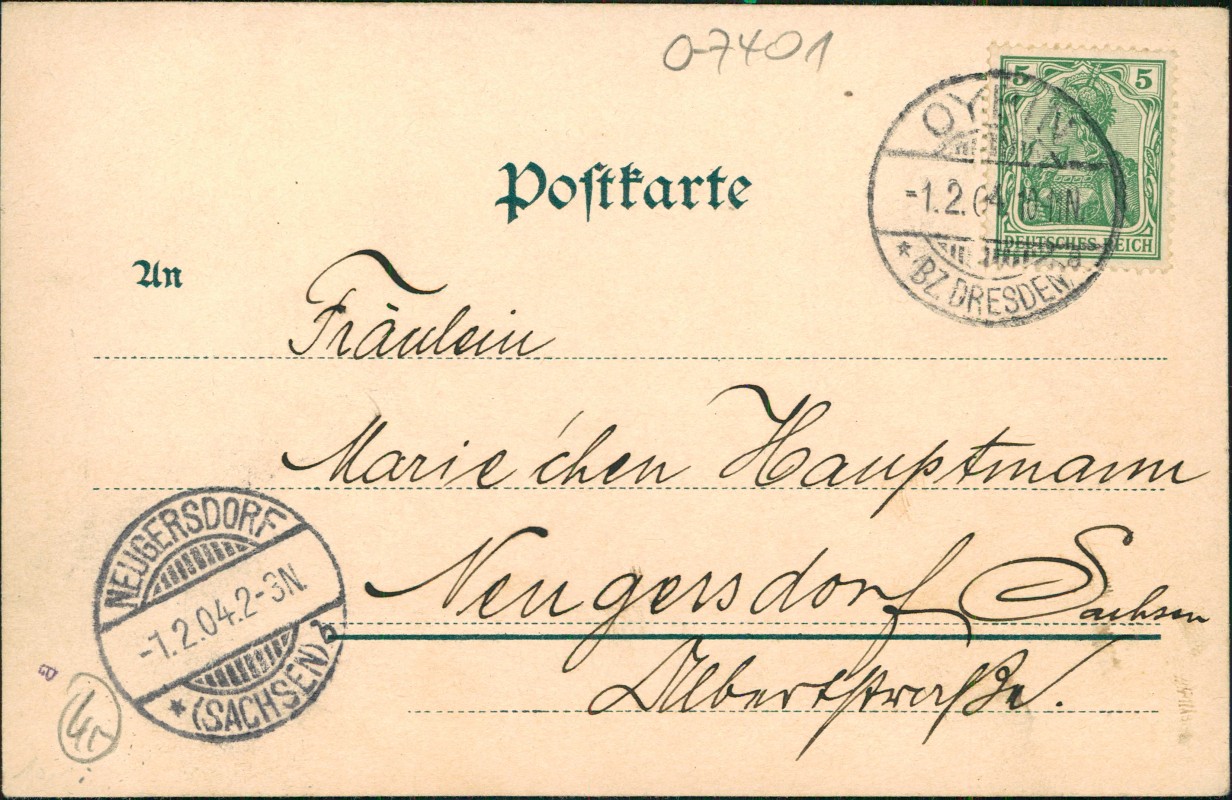 0-7401
5 5
DEUTSCHES REICH
OYBIN
-1.2.04. 10-11N.
* (BZ. DRESDEN) a
Postkarte
An
Fräulein
Marie'chen Hauptmann
Neugersdorf Sachsen
Albertstraße.
NEUGERSDORF
-1.2.04. 2-3N.
* (SACHSEN) b